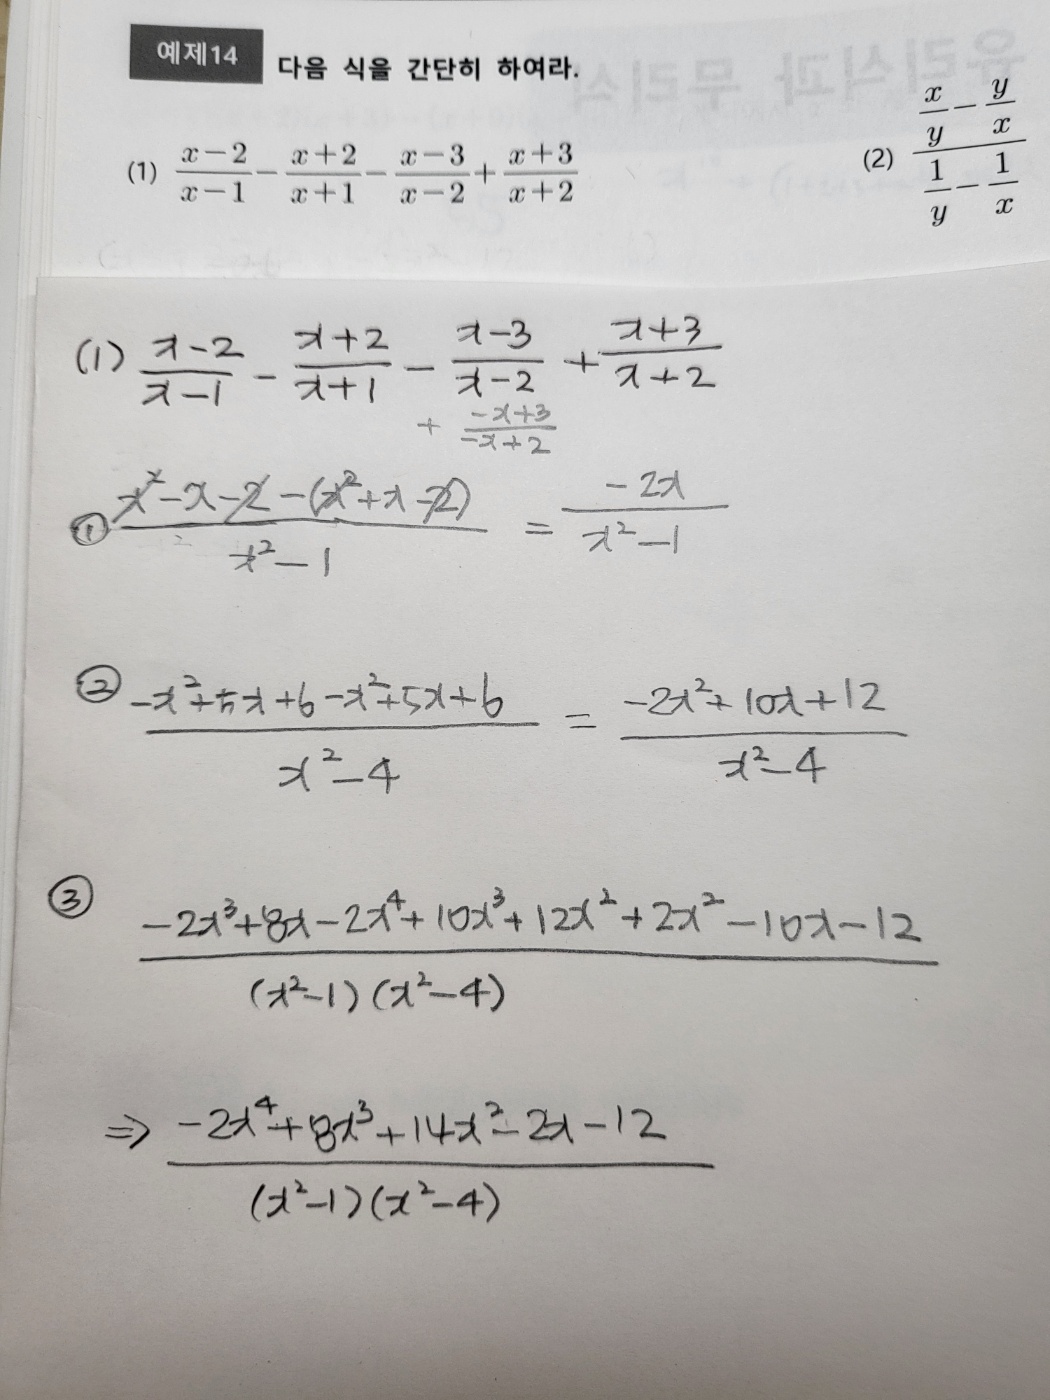 예제14 다음 식을 간단히 하여라.
(1) \frac{x-2}{x-1} - \frac{x+2}{x+1} - \frac{x-3}{x-2} + \frac{x+3}{x+2}
(2) \frac{\frac{x}{y} - \frac{y}{x}}{\frac{1}{y} - \frac{1}{x}}
유리식과 무리식
(1) \frac{x-2}{x-1} - \frac{x+2}{x+1} - \frac{x-3}{x-2} + \frac{x+3}{x+2}
+ \frac{-x+3}{-x+2}
① \frac{x^2-x-2-(x^2+x-2)}{x^2-1} = \frac{-2x}{x^2-1}
② \frac{-x^2+5x+6-x^2+5x+6}{x^2-4} = \frac{-2x^2+10x+12}{x^2-4}
③ \frac{-2x^3+8x-2x^4+10x^3+12x^2+2x^2-10x-12}{(x^2-1)(x^2-4)}
⇒ \frac{-2x^4+8x^3+14x^2-2x-12}{(x^2-1)(x^2-4)}